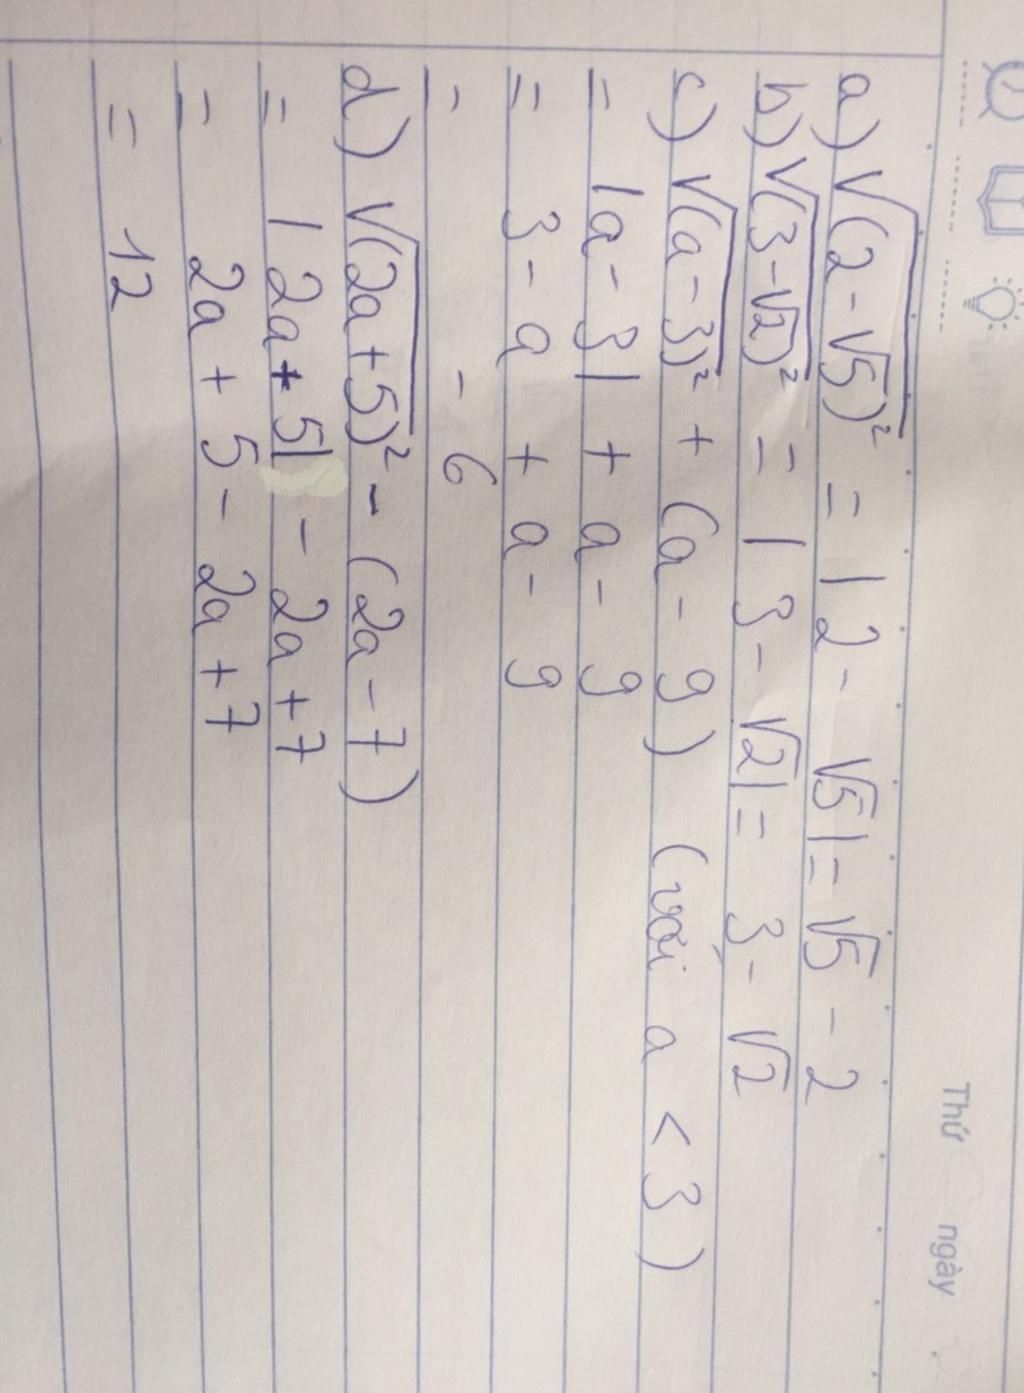 Thứ ngày
a) √(2-√5)² = |2-√5| = √5 - 2
b) √(3-√2)² = |3-√2| = 3-√2
c) √(a-3)² + (a-9) (với a < 3)
= |a-3| + a - 9
= 3-a + a - 9
= - 6
d) √(2a+5)² - (2a-7)
= |2a+5| - 2a+7
= 2a + 5 - 2a +7
= 12